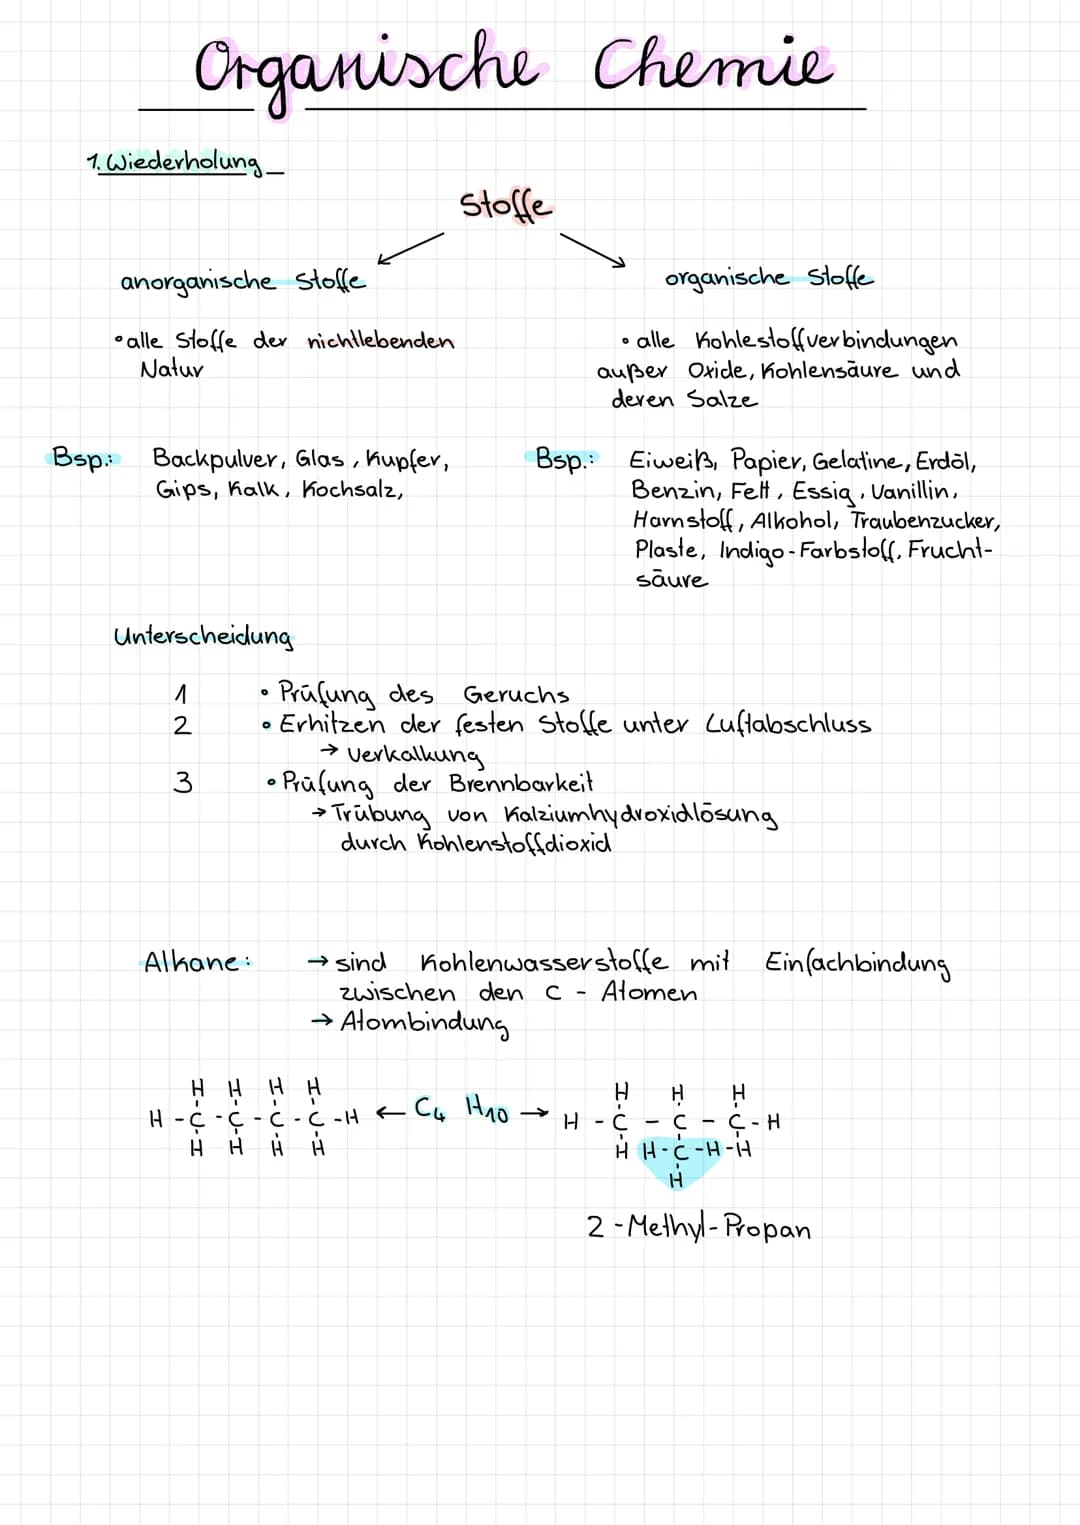 Organische Chemie
1. Wiederholung
Stoffe
anorganische Stoffe
organische Stoffe
• alle Stoffe der nichtlebenden
Natur
• alle Kohlestoffverbindungen
außer Oxide, Kohlensäure und
deren Salze
Bsp.: Backpulver, Glas, Kupfer,
Gips, Kalk, Kochsalz,
Bsp.: Eiweiß, Papier, Gelatine, Erdöl,
Benzin, Fett, Essig, Vanillin,
Harnstoff, Alkohol, Traubenzucker,
Plaste, Indigo-Farbstoff, Frucht-
säure
Unterscheidung
1 • Prüfung des Geruchs
2 • Erhitzen der festen Stoffe unter Luftabschluss
→ Verkalkung
3 • Prüfung der Brennbarkeit
→ Trübung von Kalziumhydroxidlösung
durch Kohlenstoffdioxid
Alkane: → sind Kohlenwasserstoffe mit Einfachbindung
zwischen den C - Atomen
→ Atombindung
H H H H
H - C - C - C - C - H ← C4 H10 →
H H H H
H H H
H - C - C - C - H
H H - C - H - H
H
2 - Methyl - Propan